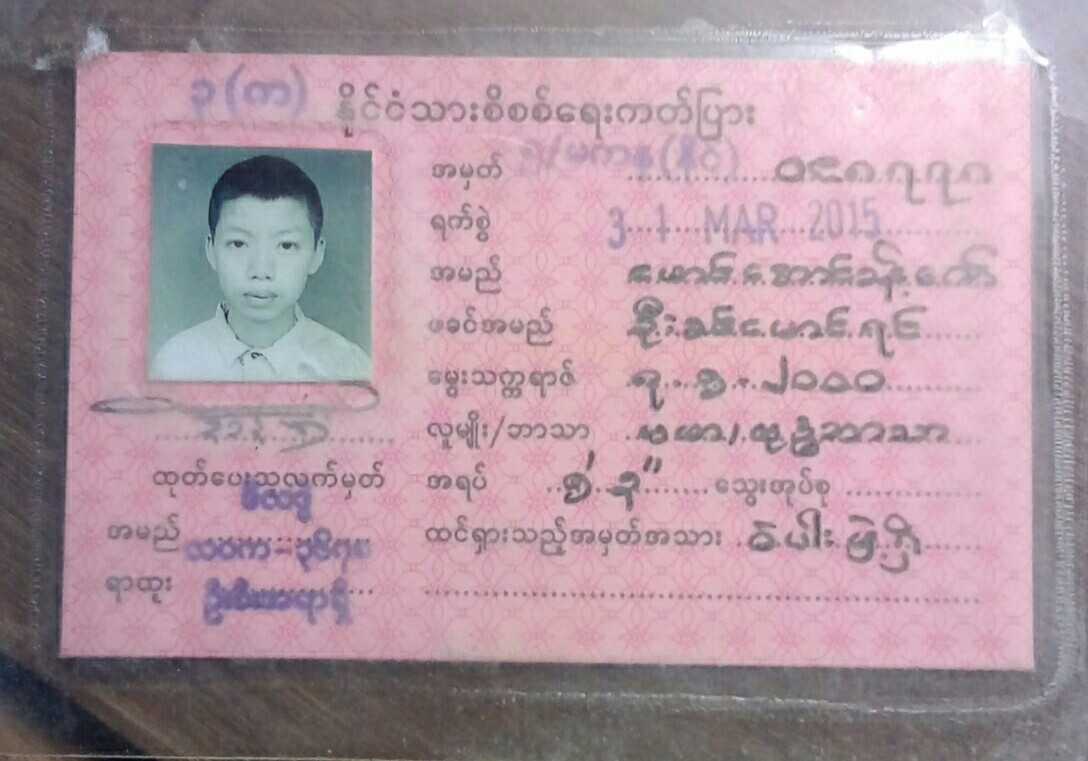 ၃(က) နိုင်ငံသားစိစစ်ရေးကတ်ပြား
အမှတ် ၉/မကန(နိုင်) ၀၎၈၇၇၈
ရက်စွဲ 31 MAR 2015
အမည် မောင်အောင်ခန့်ကော်
ဖခင်အမည် ဦးခင်မောင်ရင်
မွေးသက္ကရာဇ် ၇.၁.၂၀၀၀
လူမျိုး/ဘာသာ ဗမာ/ဗုဒ္ဓဘာသာ
အရပ် သွေးအုပ်စု
ထင်ရှားသည့်အမှတ်အသား ဝဲပါးမှဲ့ရှိ
ထုတ်ပေးသူလက်မှတ်
အမည်
လဝက-
ရာထူး